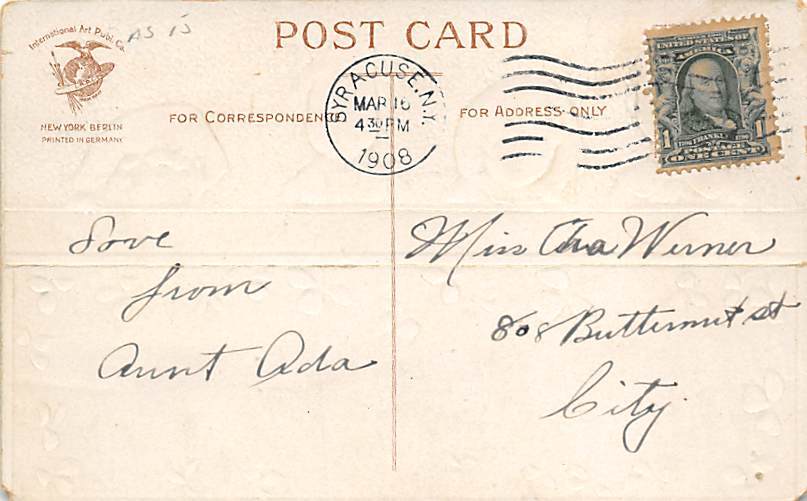 International Art Publ. Co.
AS IS
POST CARD
NEW YORK BERLIN
PRINTED IN GERMANY
FOR CORRESPONDENCE
SYRACUSE, N.Y.
MAR 16
4 30 PM
1908
FOR ADDRESS ONLY
UNITED STATES OF
AMERICA
1 FRANKLIN 1
POSTAGE
ONE CENT
Love
from
Aunt Ada
Miss Werner
808 Butternut st
City.